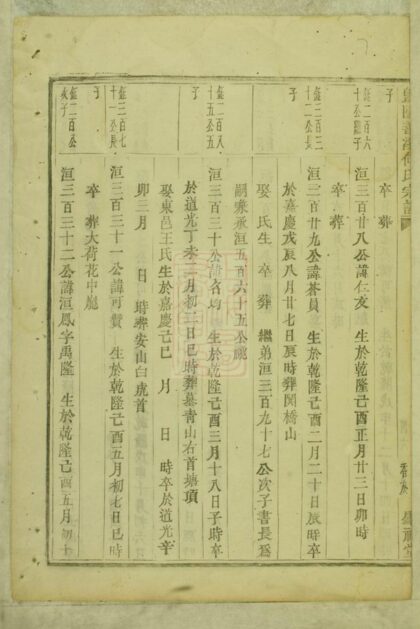 子
卒 葬
鋕二百六十公繼子
洹三百廿八公諱仁友 生於乾隆己酉正月廿三日卯時
卒 葬
鋕二百三十二公長子
洹三百廿九公諱蒼員 生於乾隆己酉二月二十日辰時卒
於嘉慶戊辰八月廿七日辰時葬関橋山
娶 氏生 卒 葬 繼弟洹三百九十七公次子書長為
嗣兼承洹五百六十五公祧
鋕二百八十五公五子
洹三百三十公諱名均 生於乾隆己酉三月十八日子時卒
於道光丁未 月初三日巳時葬墓青山右首墳頂
娶東邑王氏生於嘉慶己巳 月 日 時卒於道光辛
卯三月 日 時葬安山白虎首
鋕三百七十一公長子
洹三百三十一公諱可贊 生於乾隆己酉五月初七日巳時
卒 葬大荷花中廳
鋕二百公次子
洹三百三十二公諱洹鳳字禹隆 生於乾隆己酉五月初十